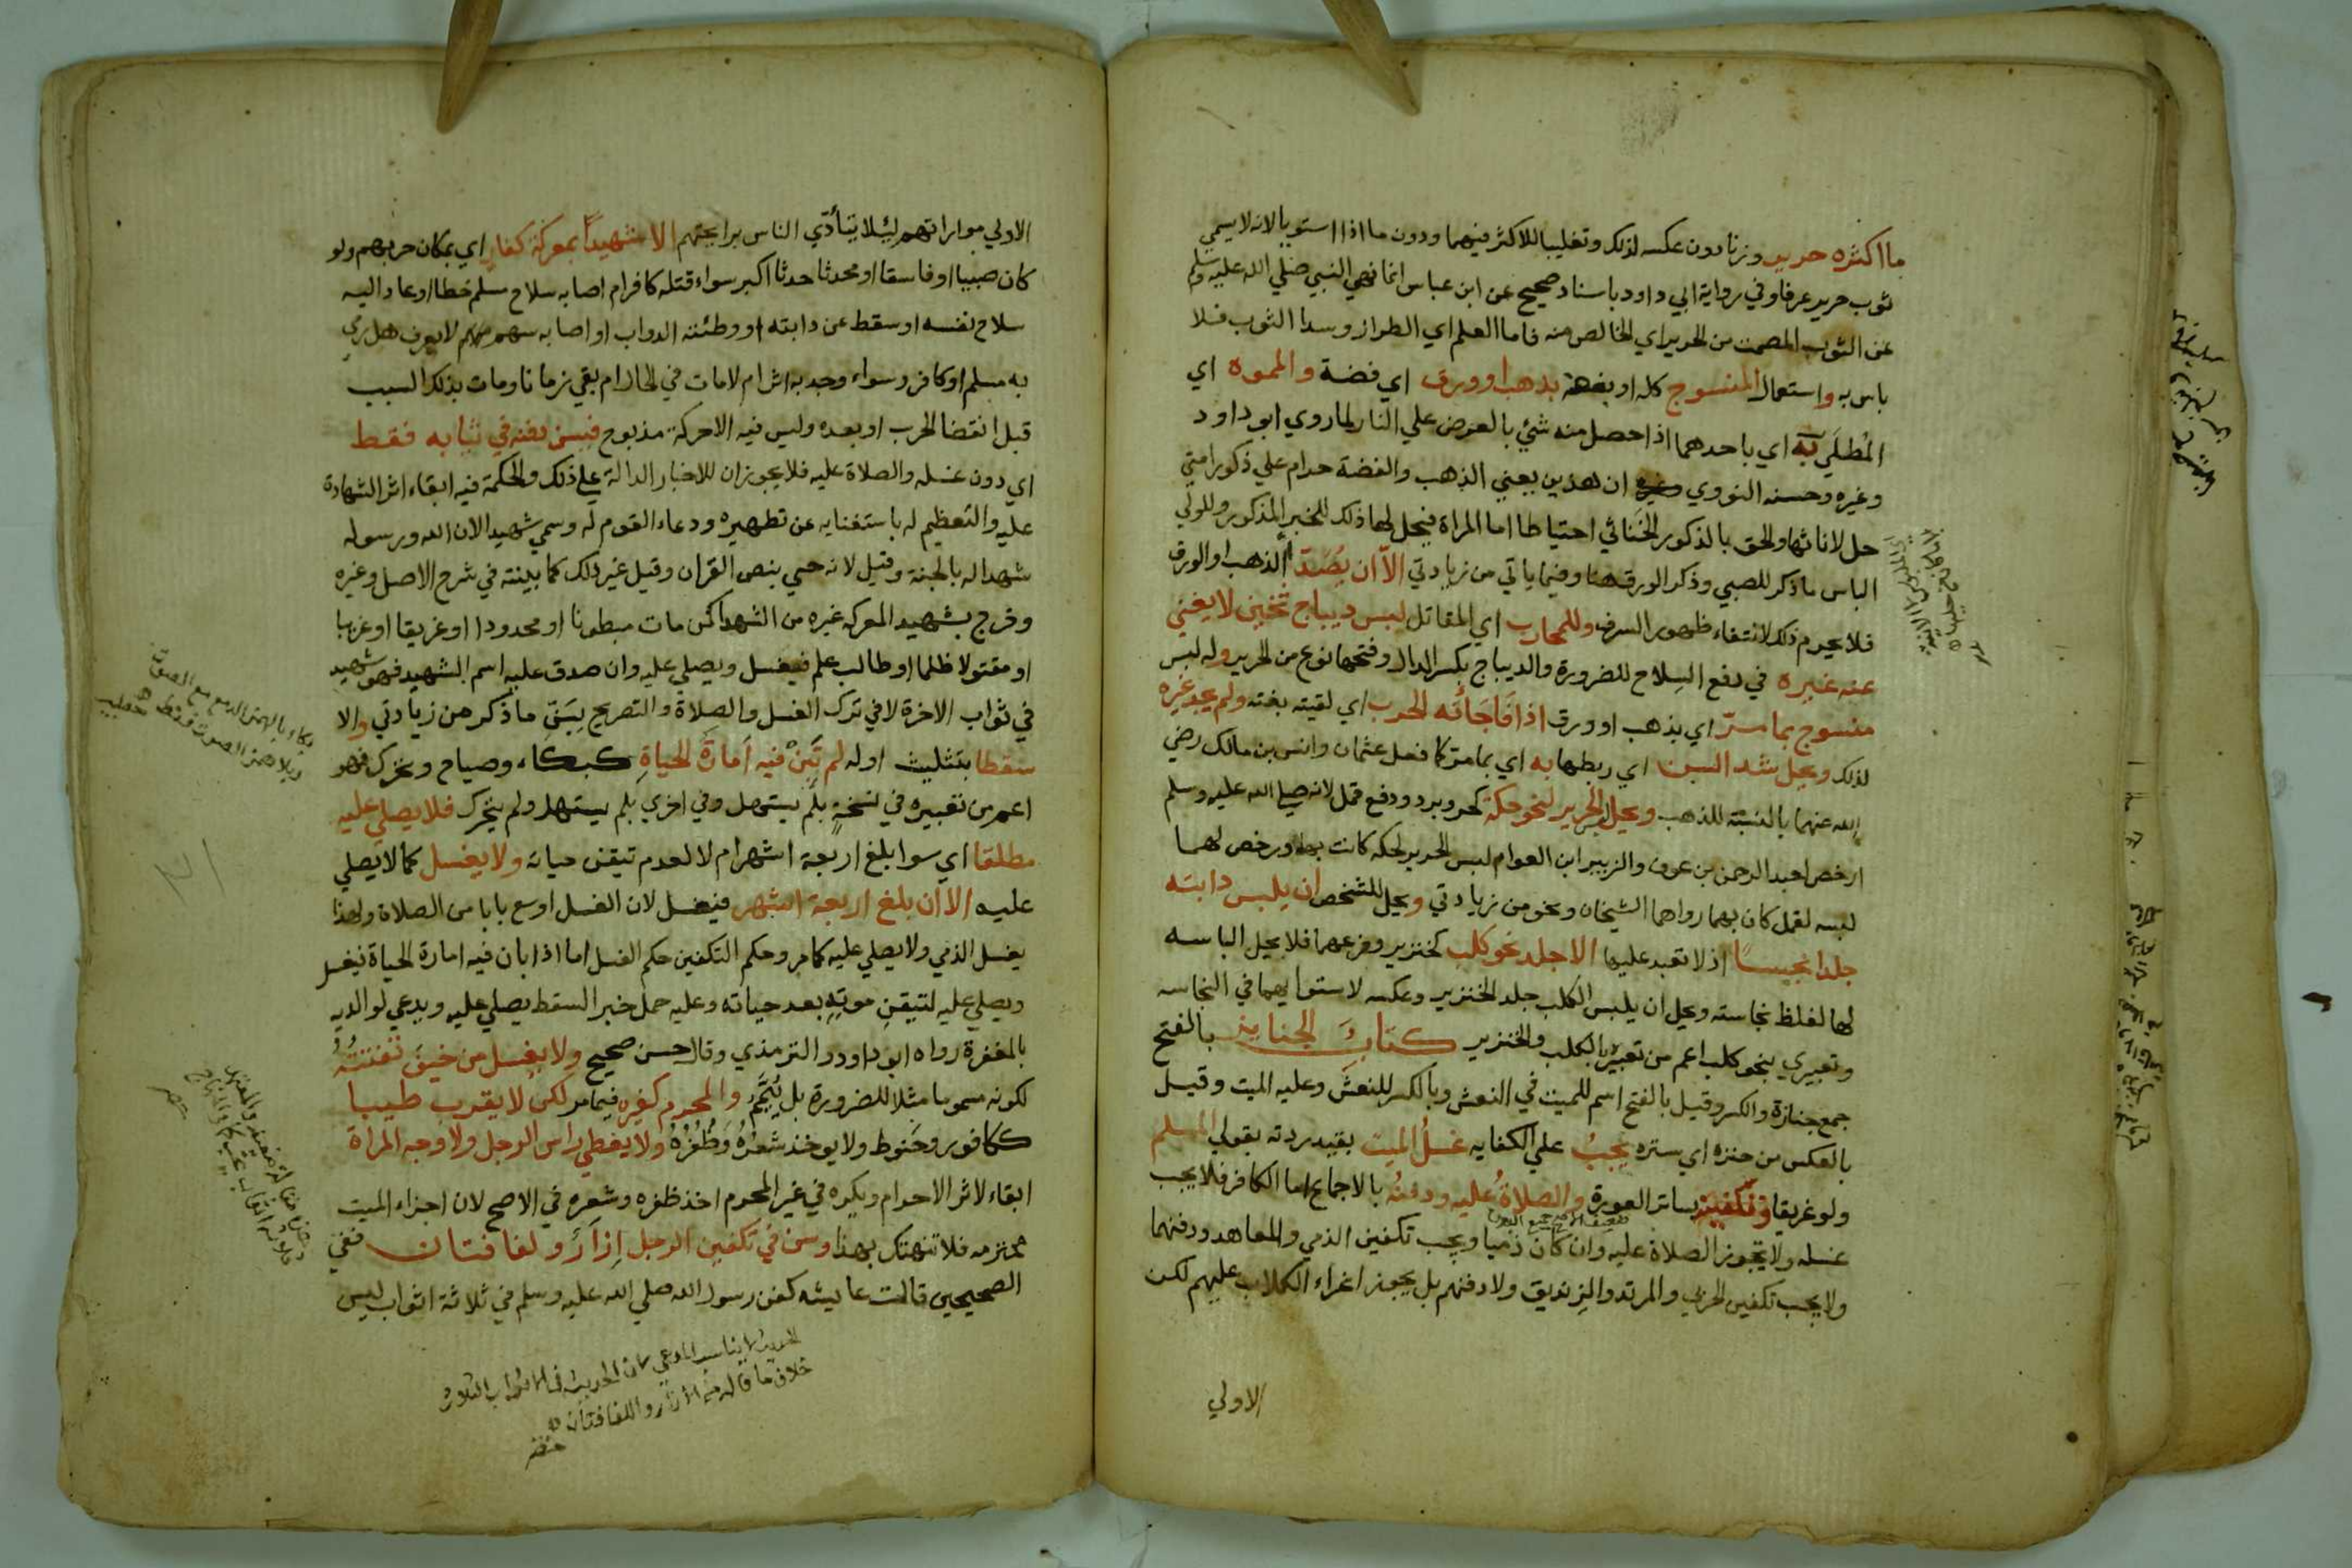 ما اكثره حرير وزنا دون عكسه لذلك وتغليبا للاكثر فيهما ودون ما اذا استويا لانه لا يسمي
ثوب حرير عرفا وفي رواية ابي داود باسناد صحيح عن ابن عباس انما نهي النبي صلي الله عليه وسلم
عن الثوب المصمت من الحرير اي الخالص منه فاما العلم اي الطراز وسدا الثوب فلا
باس به واستعمال المنسوج كله او بعضه بذهب او ورق اي فضة والمموه اي
المطلَي به اي باحدهما اذا حصل منه شيء بالعرض علي النار لما روي ابو داود
وغيره وحسنه النووي ان هذين يعني الذهب والفضة حرام علي ذكور امتي
حل لاناثها والحق بالذكور الخَناثي احتياطا اما المراة فيحل لها ذلك للخبر المذكور وللولي
الباس ما ذكر للصبي وذكر الورق هنا وفيما ياتي من زيادتي الاّ ان يَصْدَأ الذهب او الورق
فلا يحرم ذلك لانتفاء ظهور السرف وللمحارب اي المقاتل لبس ديباج ثخين لا يغني
عنه غيره في دفع السِلاح للضرورة والديباج بكسر الدال وفتحها نوع من الحرير وله لبس
منسوج بما مرّ اي بذهب او ورق اذا فَاجَأَته الحرب اي لقيته بغتة ولم يجد غيره
لذلك ويحل شد السن اي ربطها به اي بما مر كما فعل عثمان وانس بن مالك رضي
الله عنهما بالنسبة للذهب ويحل الحرير لنحو حكة كحر وبرد ودفع قمل لانه صلي الله عليه وسلم
ارخص لعبد الرحمن بن عوف والزبير ابن العوام لبس الحرير لحكه كانت بهما ورخص لهما
لبسه لقمل كان بهما رواهما الشيخان ونحو من زيادتي ويحل للشخص ان يلبس دابته
جلدا نجسًا اذ لا تعبد عليها الا جلد نحو كلب كخنزير وفرعهما فلا يحل الباسه
لها لغلظ نجاسته ويحل ان يلبس الكلب جلد الخنزير وعكسه لاستوايهما في النجاسه
وتعبيري بنحو كلب اعم من تعبيره بالكلب والخنزير كتابُ الجنايز بالفتح
جمع جنازة والكسر وقيل بالفتح اسم للميت في النعش وبالكسر للنعش وعليه الميت وقيل
بالعكس من جنزه اي ستره يجبُ علي الكفايه غسلُ الميت بقيد زدته بقولي المسلم
ولو غريقا وتكفينه بساتر العورة والصلاةُ عليه ودفنُه بالاجماع اما الكافر فلا يجب
غسله ولا تجوز الصلاة عليه وان كان ذميا ويجب تكفين الذمي والمعاهد ودفنهما
ولا يجب تكفين الحربي والمرتد والزنديق ولا دفنهم بل يجوز اغراء الكلاب عليهم لكن
الاولي
الاولي مواراتهم ليلا يتأذي الناس برايحتهم الا شهيدًا بمعركة كفار اي بمكان حربهم ولو
كان صبيا او فاسقا او محدثا حدثا اكبر سواء قتله كافر ام اصابه سلاح مسلم خطا او عاد اليه
سلاح نفسه او سقط عن دابته او وطئته الدواب او اصابه سهم لا يعرف هل رمي
به مسلم او كافر وسواء وجد به اثر ام لا مات في الحال ام بقي زمانا ومات بذلك السبب
قبل انقضا الحرب او بعده وليس فيه الا حركة مذبوح فيسن دفنه في ثيابه فقط
اي دون غسله والصلاة عليه فلا يجوزان للاخبار الدالة علي ذلك والحكمة فيه ابقاء اثر الشهادة
عليه والتعظيم له باستغنايه عن تطهيره ودعاء القوم له وسمي شهيدا لان الله ورسوله
شهدا له بالجنة وقيل لانه حي بنص القران وقيل غير ذلك كما بينته في شرح الاصل وغيره
وخرج بشهيد المعركه غيره من الشهدا كمن مات مبطونا او محدودا او غريقا او غريبا
او مقتولا ظلما او طالب علم فيغسل ويصلي عليه وان صدق عليه اسم الشهيد فهو شهيد
في ثواب الاخرة لا في ترك الغسل والصلاة والتصريح بِسَنِّ ما ذكر من زيادتي والا
سقطا بتثليث اوله لم تَبِنْ فيه اَمارَة الحياةِ كبكاء وصياح وتحرك فهو
اعم من تعبيره في نسخةٍ بلَم يستهل وفي اخري بلم يستهل ولم يتحرك فلا يصلي عليه
مطلقا اي سوا بلغ اربعة اشهر ام لا لعدم تيقن حياته ولا يغسل كما لا يصلي
عليه الا ان بلغ اربعة اشهر فيغسل لان الغسل اوسع بابا من الصلاة ولهذا
يغسل الذمي ولا يصلي عليه كما مر وحكم التكفين حكم الغسل اما اذا بان فيه امارة الحياة فيغسل
ويصلي عليه لتيقن موته بعد حياته وعليه حمل خبر السقط يصلي عليه ويدعي لوالديه
بالمغفرة رواه ابو داود والترمذي وقال حسن صحيح ولا يغسل من خيف تفتته
لكونه مسموما مثلا للضرورة بل يُيَمَّمُ والمحرم كغيره فيما مر لكن لا يقرب طيبا
ككافور وحَنوط ولا يوخذ شَعْرُهُ وَظُفُرُهُ ولا يغطي راس الرجل ولا وجه المراة
ابقاء لاثر الاحرام ويكره في غير المحرم اخذ ظفره وشعره في الاصح لان اجزاء الميت
محترمه فلا تنهتك بهذا وسن في تكفين الرجل اِزَارٌ ولفافتان ففي
الصحيحين قالت عايشه كفن رسول الله صلي الله عليه وسلم في ثلاثة اثواب ليس
بكاء بالهمز الدمع مع الصوت
وبلا همز الصوت فقط
خلاف ما قاله من الازار واللفافتان